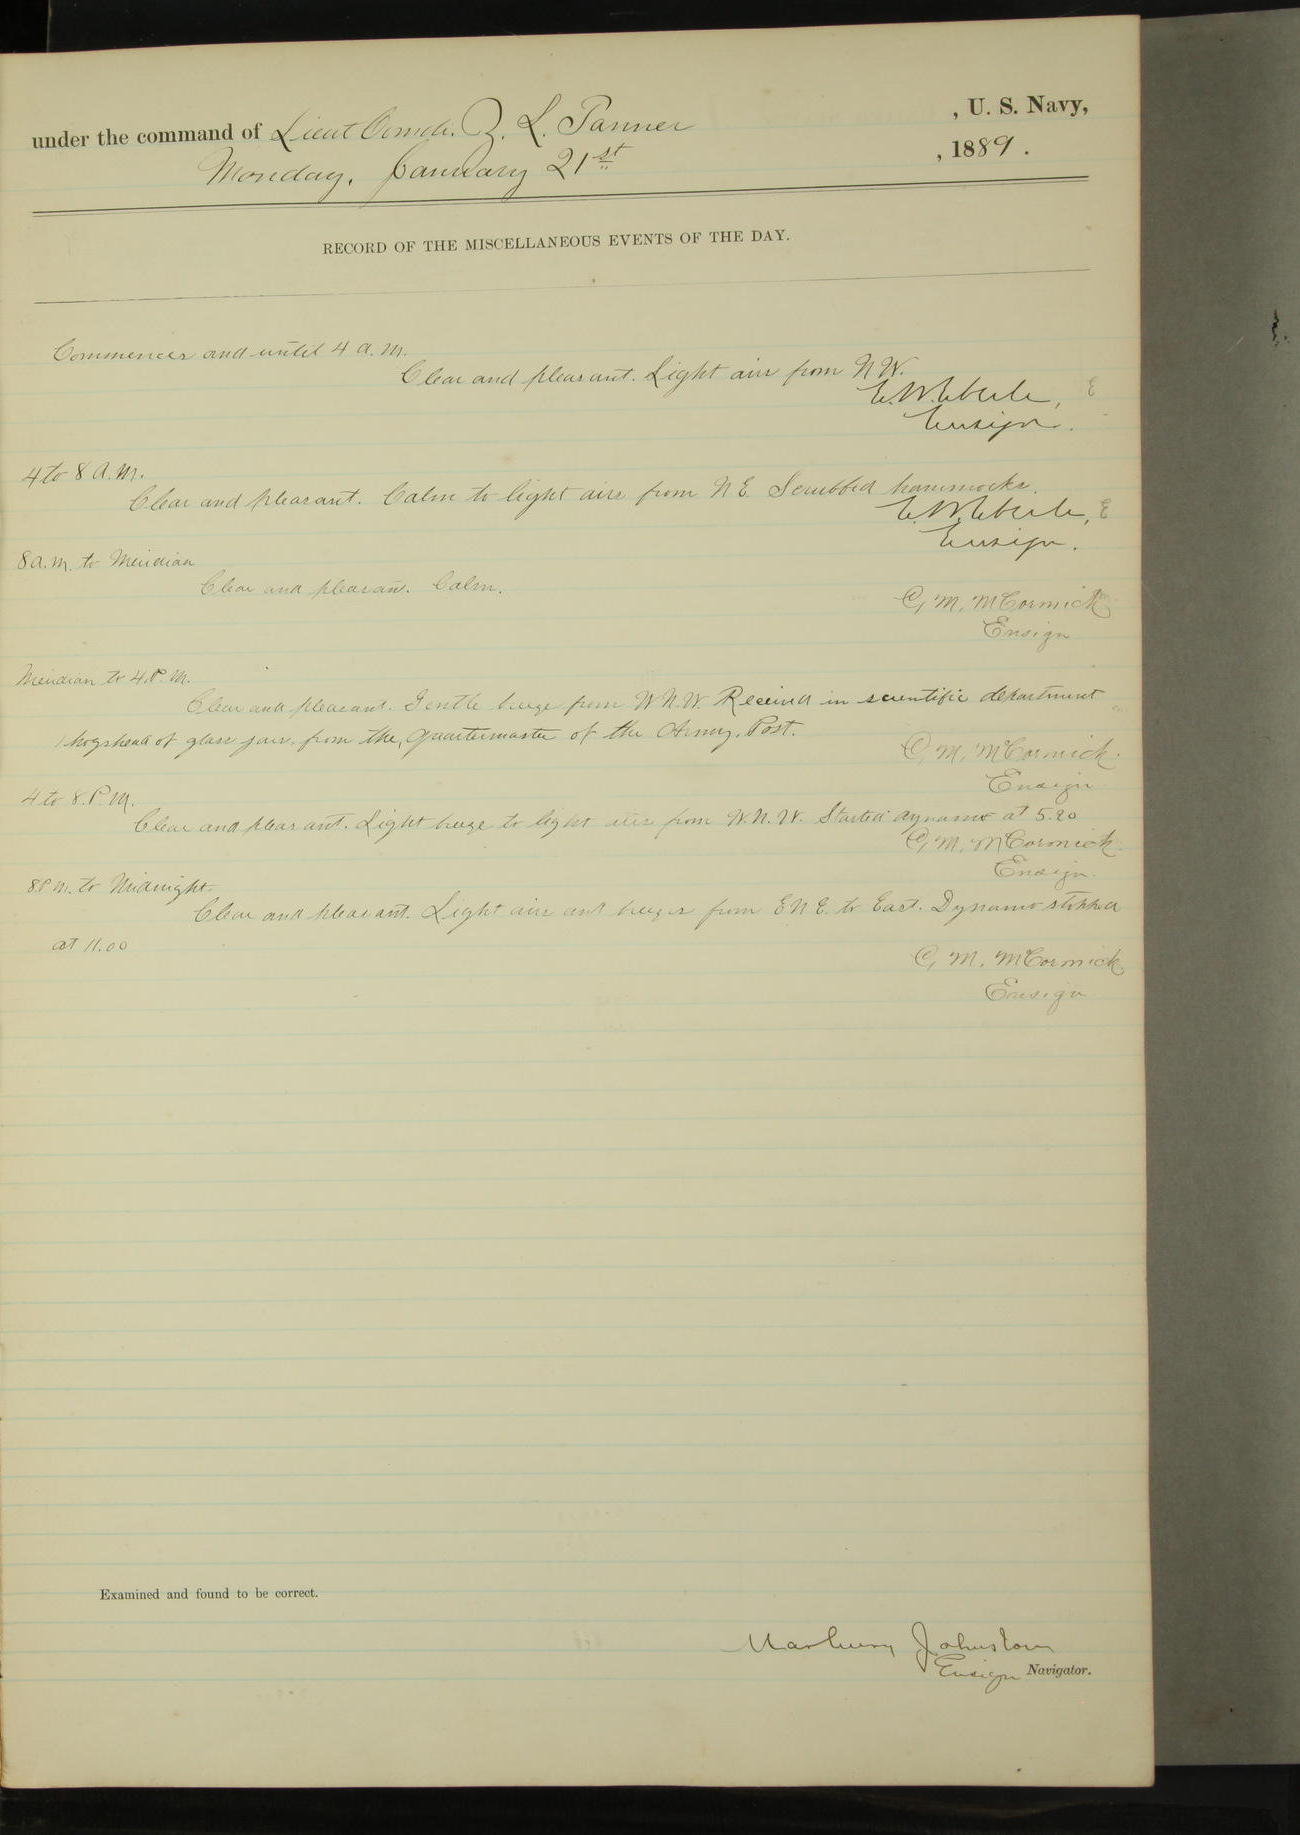 under the command of Lieut Comdr. Z. L. Tanner , U. S. Navy,
Monday, January 21st , 1889.
RECORD OF THE MISCELLANEOUS EVENTS OF THE DAY.
Commences and until 4 a.m.
Clear and pleasant. Light airs from N W.
E. W. Eberle, E
Ensign.
4 to 8 A.M.
Clear and pleasant. Calm to light airs from N E. Scrubbed hammocks.
E. W. Eberle, E
Ensign.
8 a.m. to Meridian
Clear and pleasant. Calm.
C, M, McCormick
Ensign
Meridian to 4. P. M.
Clear and pleasant. Gentle breeze from W N. W. Received in scientific department
1 hogshead of glass jars, from the, Quartermaster of the Army. Post.
C, M, McCormick.
Ensign
4 to 8. P. M.
Clear and pleasant. Light breeze to light airs from W. N. W. Started dynamo at 5.20
C, M, McCormick.
Ensign.
8 P. M. to Midnight.
Clear and pleasant. Light airs and breezes from E N E. to East. Dynamo stopped
at 11.00
C, M. McCormick
Ensign
Examined and found to be correct.
Marbury Johnston
Ensign Navigator.